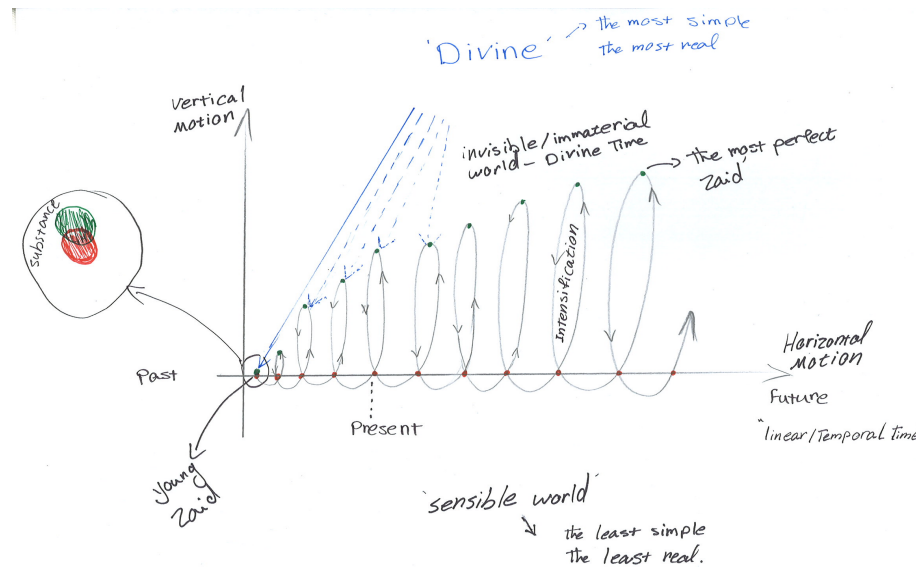 'Divine'
the most simple
The most real
Vertical
Motion
invisible/immaterial
world – Divine Time
the most perfect
Zaid
substance
Intensification
Past
Present
Horizontal
Motion
Future
"linear/Temporal Time
young
Zaid
'sensible world'
the least simple
The least real.